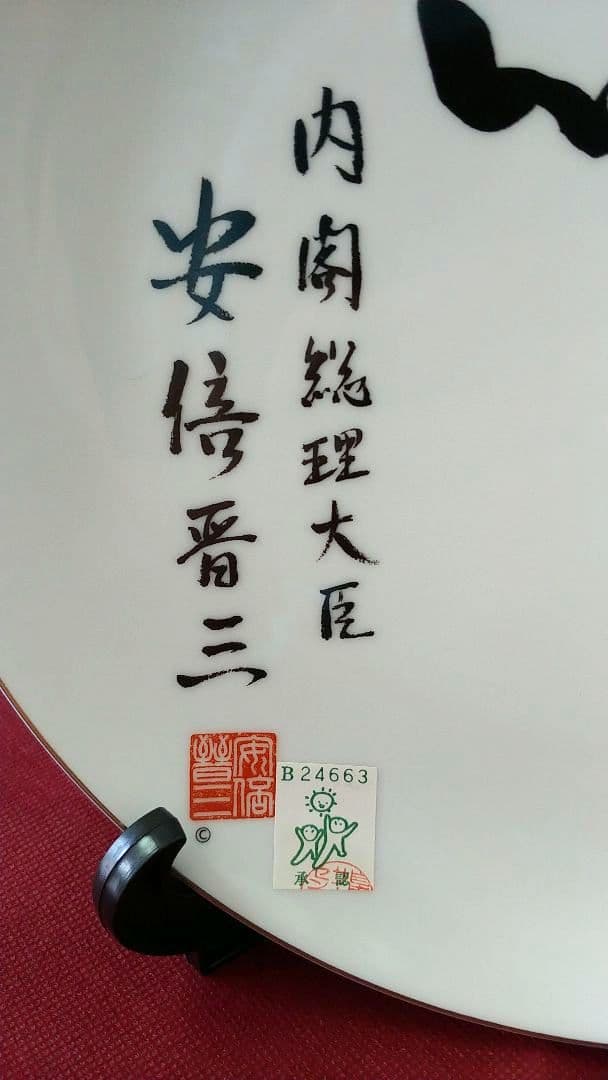 内閣総理大臣
安倍晋三
安倍
晋三
©
B24663
承認